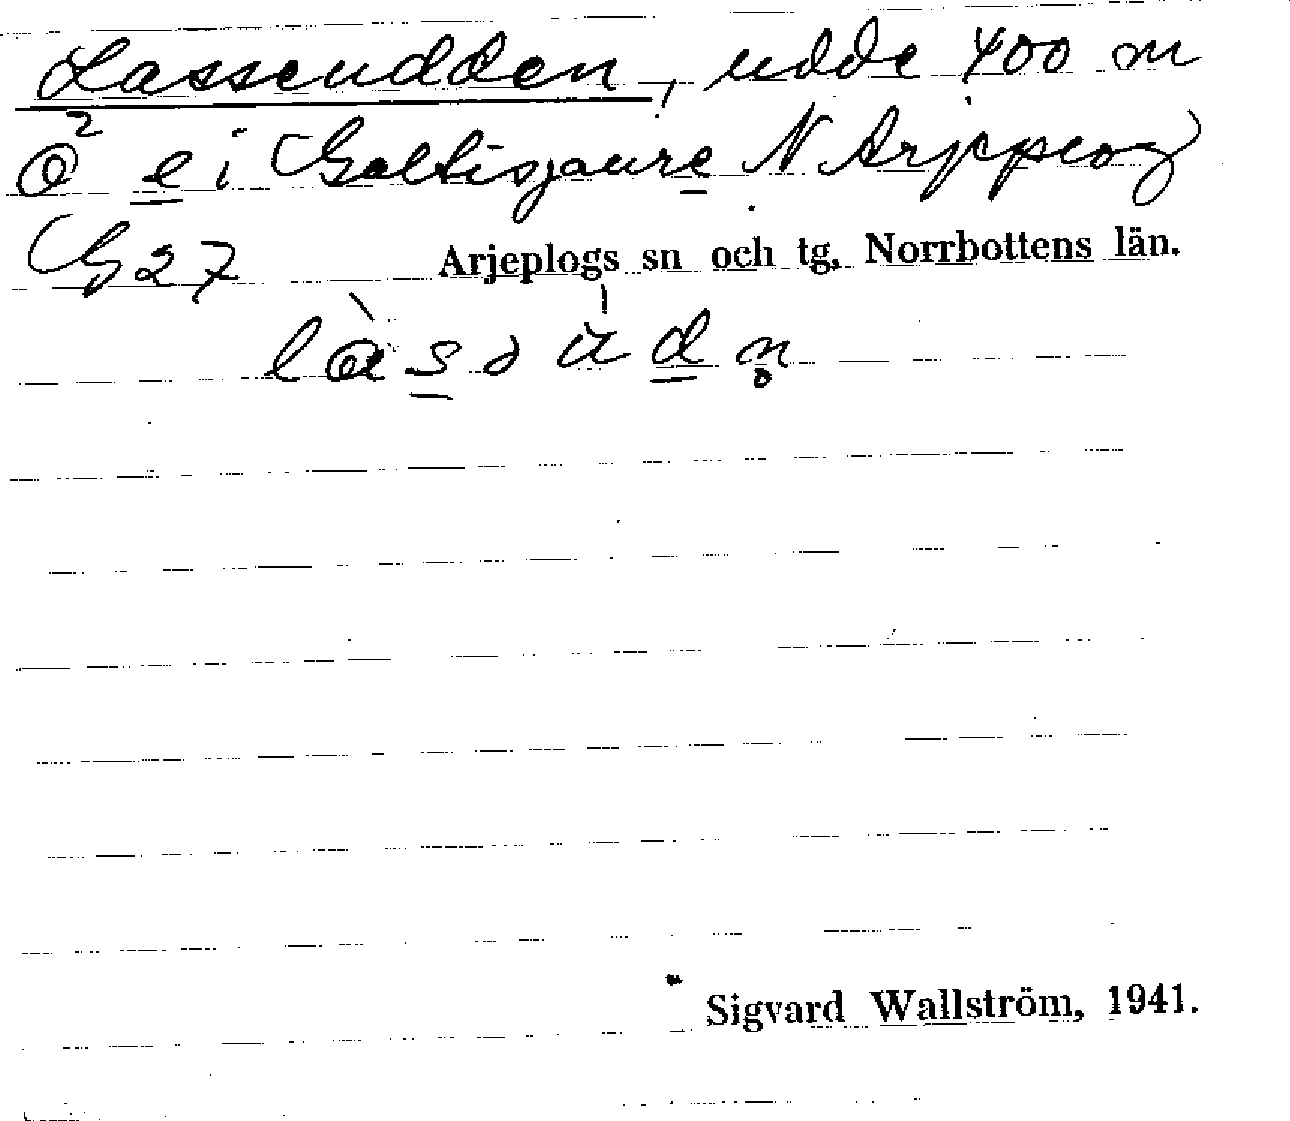 Lassudden, udde 400 m
Ö² e i Galtisjaure N Arjeplog
G 27
Arjeplogs sn och tg, Norrbottens län.
làsəùdn̥
Sigvard Wallström, 1941.